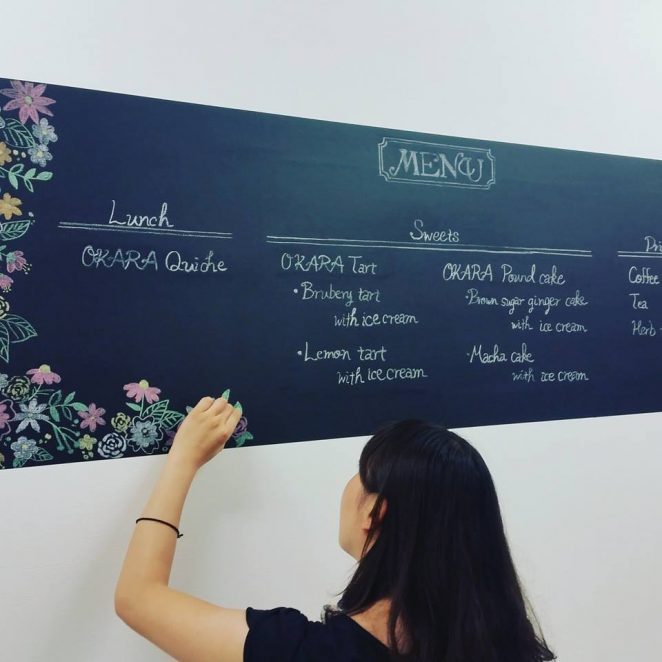 MENU
Lunch
OKARA Quiche
Sweets
OKARA Tart
・Brubery tart
with ice cream
・Lemon tart
with ice cream
OKARA Pound cake
・Brown sugar ginger cake
with ice cream
・Macha cake
with ice cream
Coffee
Tea
Herb